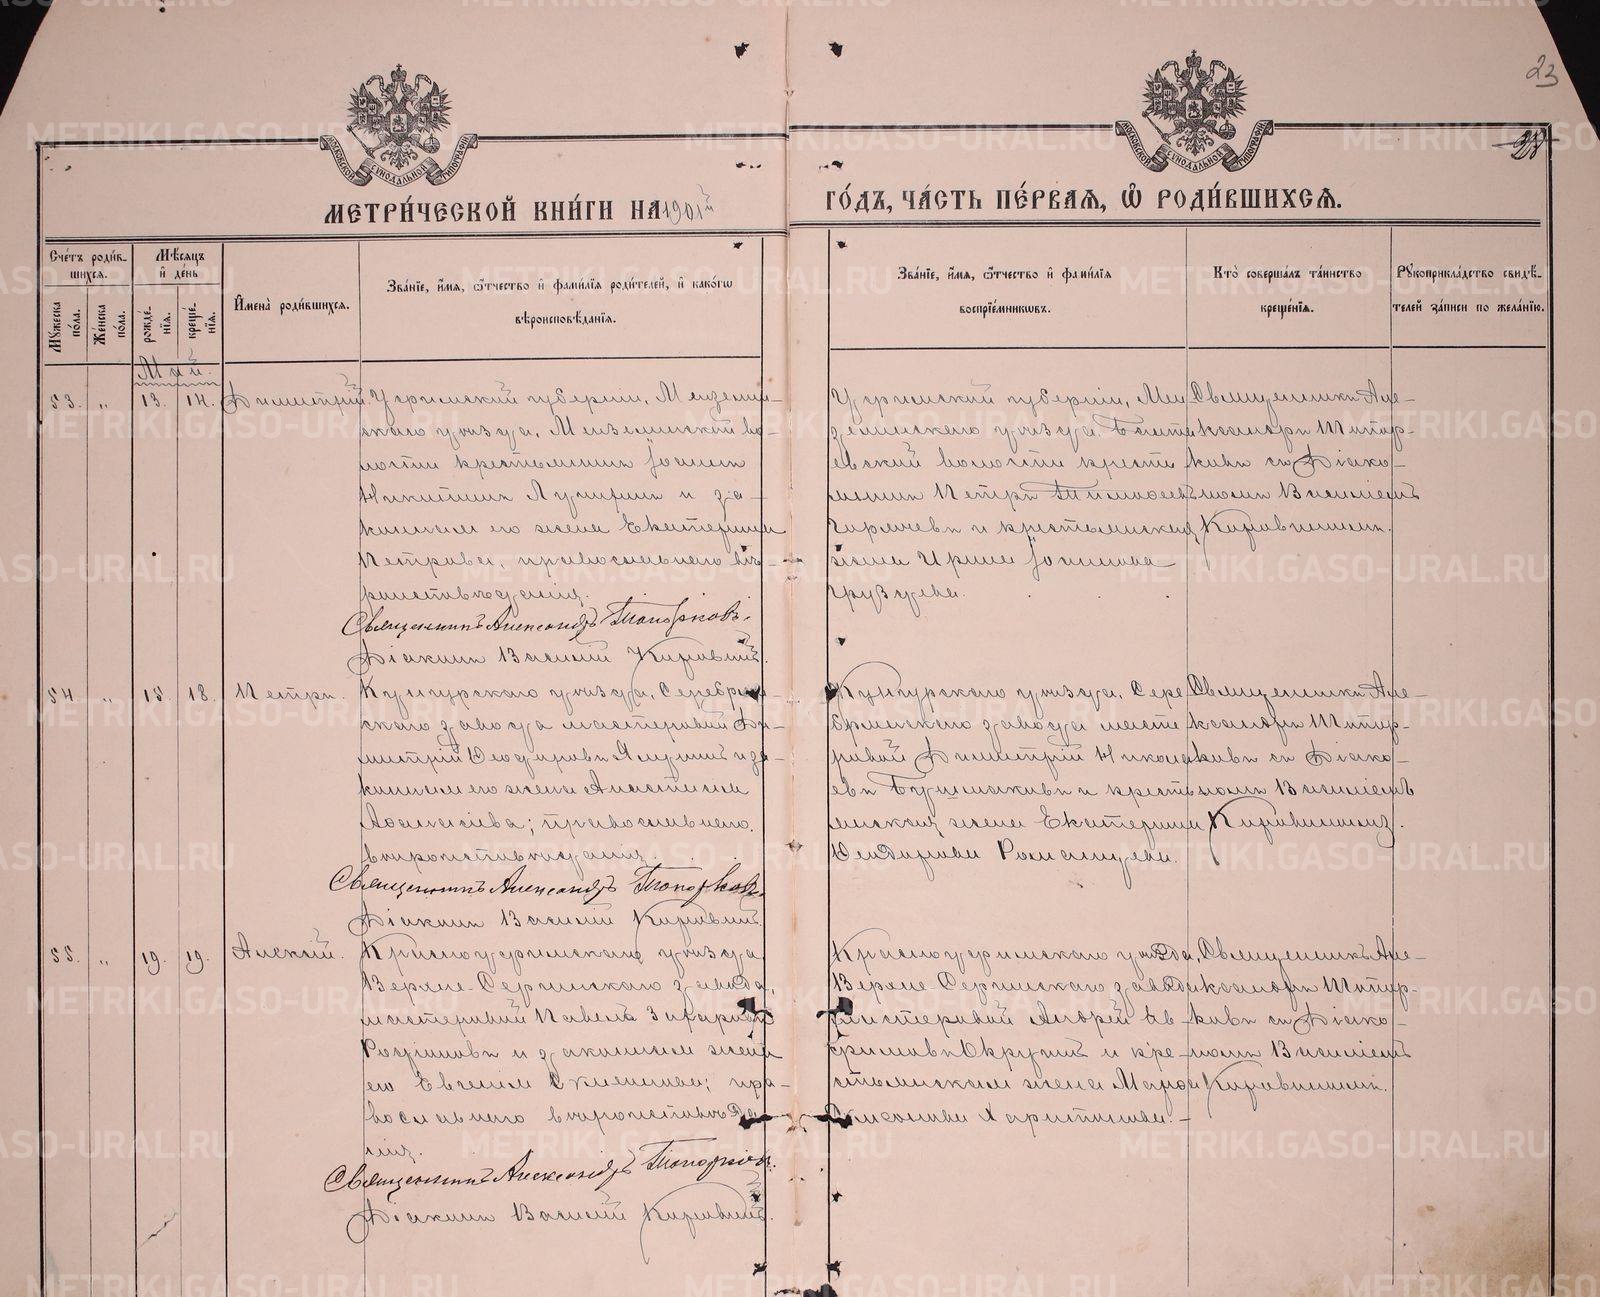 23
28
МОСКОВСКОЙ СѴНОДАЛЬНОЙ ТИПОГРАФІИ
МОСКОВСКОЙ СѴНОДАЛЬНОЙ ТИПОГРАФІИ
МЕТРИ́ЧЕСКОЙ КНИ́ГИ НА 1901й
ГО́ДЪ, ЧА́СТЬ ПЕ́РВАѦ, Ѽ РОДИ́ВШИХСѦ.
Сче́тъ роди́вшихсѧ.
Мꙋ́жеска по́ла.
Же́нска по́ла.
Мѣ́сѧцъ и҆ де́нь
рожде́нїѧ.
креще́нїѧ.
И҆мена̀ роди́вшихсѧ.
Зва́нїе, и҆́мѧ, ѻ҆́тчество и҆ фамі́лїѧ роди́телей, и҆ како́гѡ вѣроисповѣ́данїѧ.
Зва́нїе, и҆́мѧ, ѻ҆́тчество и҆ фамі́лїѧ воспрїе́мникѡвъ.
Кто̀ соверша́лъ та́инство креще́нїѧ.
Рꙋкоприкла́дство свидѣ́телей за́писи по жела́нїю.
Май.
53. „ 13. 14. Димитрій.
Уфимской губерніи, Мензелин-
скаго уѣзда, Мензелинской во-
лости крестьянинъ Іоаннъ
Никитинъ и за-
конная его жена Екатерина
Петрова, православнаго вѣ-
роисповѣданія.
Священникъ Александръ Топорковъ.
Діаконъ Василій
Уфимской губерніи, Мен
зелинскаго уѣзда,
волости кресть
янинъ Петръ
и крестьянская
жена Ирина Іоаннова
Священникъ Але-
ксандръ Топор-
ковъ съ Діако-
номъ Василіемъ
54. „ 15. 18. Петръ.
Кунгурскаго уѣзда, Серебрян-
скаго завода мастеровой Ди-
митрій Ѳеодоровъ и за-
конная его жена Анастасія
Аѳанасіева; православнаго
вѣроисповѣданія.
Священникъ Александръ Топорковъ.
Діаконъ Василій
Кунгурскаго уѣзда, Сере
брянскаго завода масте
ровой Димитрій Никола
евъ Бушмакинъ и кресть
янская жена Екатерина
Ѳеодорова
Священникъ Але-
ксандръ Топор-
ковъ съ Діако-
номъ Василіемъ
55. „ 19. 19. Алексій.
Красноуфимскаго уѣзда
Верхне-Сергинскаго завода,
мастеровой Павелъ Захаровъ
и законная жена
его Евгенія; пра-
вославнаго вѣроисповѣда-
нія.
Священникъ Александръ Топорковъ.
Діаконъ Василій
Красноуфимскаго уѣзда,
Верхне-Сергинскаго завода
мастеровой Андрей Ев-
фимовъ и кре-
стьянская жена Марѳа
Священникъ Але-
ксандръ Топор-
ковъ съ Діако-
номъ Василіемъ
METRIKI.GASO-URAL.RU